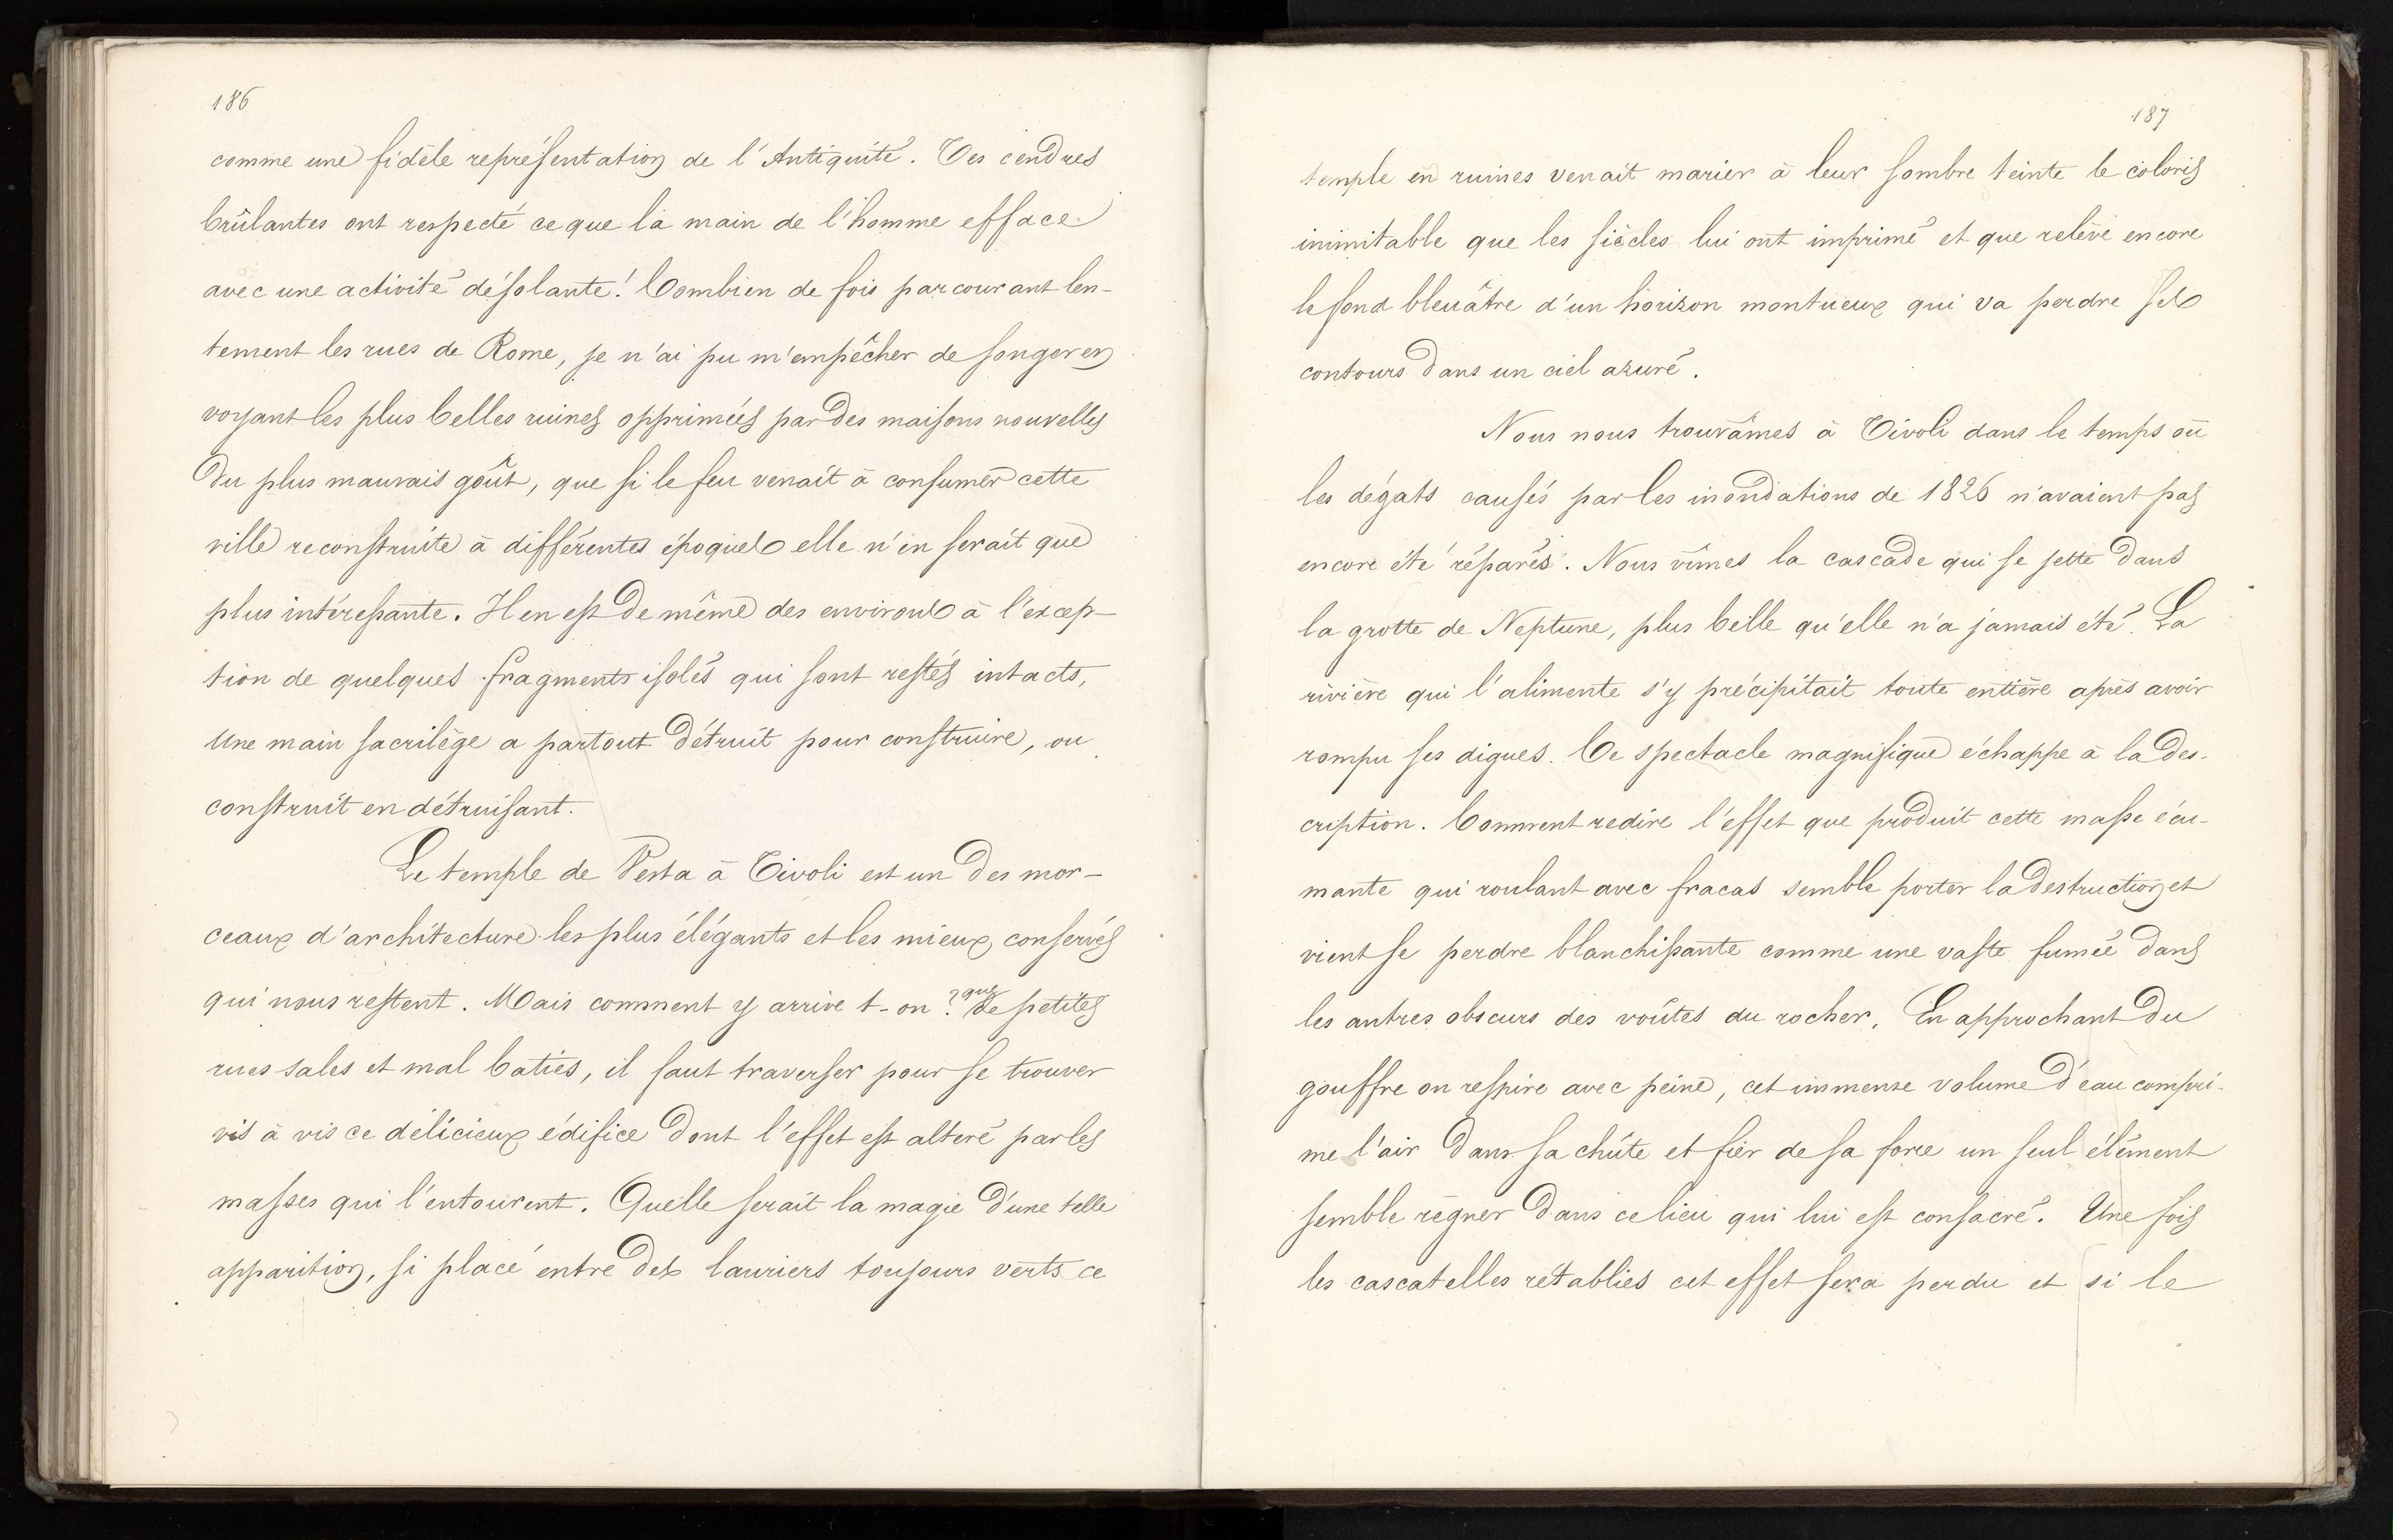 186
comme une fidèle représentation de l'Antiquité. Des cendres
brûlantes ont respecté ce que la main de l'homme efface
avec une activité désolante! Combien de fois parcourant len-
tement les rues de Rome, je n'ai pu m'empêcher de songer en
voyant les plus belles ruines opprimées par des maisons nouvelles
du plus mauvais goût, que si le feu venait à consumer cette
ville reconstruite à différentes époques elle n'en serait que
plus intéressante. Il en est de même des environs à l'excep-
tion de quelques fragments isolés qui sont restés intacts,
Une main sacrilège a partout détruit pour construire, ou
construit en détruisant.
Le temple de Vesta à Tivoli est un des mor-
ceaux d'architecture les plus élégants et les mieux conservés
qui nous restent. Mais comment y arrive t-on? que de petites
rues sales et mal baties, il faut traverser pour se trouver
vis à vis ce délicieux édifice dont l'effet est alteré par les
masses qui l'entourent. Quelle serait la magie d'une telle
apparition, si placé entre des lauriers toujours verts ce
187
temple en ruines venait marier à leur sombre teinte le coloris
inimitable que les siècles lui ont imprimé et que relève encore
le fond bleuâtre d'un horizon montueux qui va perdre ses
contours dans un ciel azuré.
Nous nous trouvâmes à Tivoli dans le temps où
les dégats causés par les inondations de 1826 n'avaient pas
encore été réparés. Nous vîmes la cascade qui se jette dans
la grotte de Neptune, plus belle qu'elle n'a jamais été. La
rivière qui l'alimente s'y précipitait toute entière après avoir
rompu ses digues. Ce spectacle magnifique échappe à la des-
cription. Comment redire l'effet que produit cette masse écu-
mante qui roulant avec fracas semble porter la destruction et
vient se perdre blanchissante comme une vaste fumée dans
les antres obscurs des voûtes du rocher. En approchant du
gouffre on respire avec peine, cet immense volume d'eau compri-
me l'air dans sa chûte et fier de sa force un seul élément
semble règner dans ce lieu qui lui est consacré. Une fois
les cascatelles rétablies cet effet sera perdu et si le